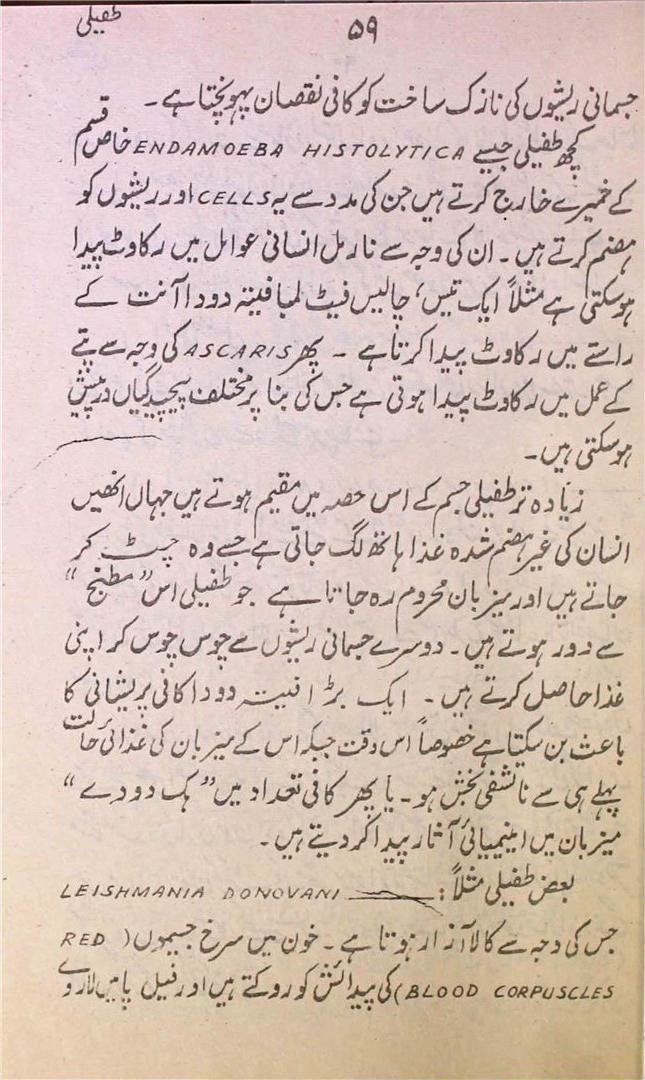 طفیلی
۵۹
جسمانی ریشوں کی نازک ساخت کو کافی نقصان پہونچتا ہے۔
کچھ طفیلی جیسے ENDAMOEBA HISTOLYTICA خاص قسم
کے خمیرے خارج کرتے ہیں جن کی مدد سے یہ CELLS اور ریشوں کو
ہضم کرتے ہیں۔ ان کی وجہ سے نارمل انسانی عوامل میں رکاوٹ پیدا
ہوسکتی ہے مثلاً ایک تیس، چالیس فیٹ لمبا فیتہ دودا آنت کے
راستے میں رکاوٹ پیدا کرتا ہے۔ پھر ASCARIS کی وجہ سے پتے
کے عمل میں رکاوٹ پیدا ہوتی ہے جس کی بنا پر مختلف پیچیدگیاں درپیش
ہوسکتی ہیں۔
زیادہ تر طفیلی جسم کے اس حصہ میں مقیم ہوتے ہیں جہاں انھیں
انسان کی غیر ہضم شدہ غذا ہاتھ لگ جاتی ہے جسے وہ چٹ کر
جاتے ہیں اور میزبان محروم رہ جاتا ہے جو طفیلی اس "مطبخ"
سے دور ہوتے ہیں۔ دوسرے جسمانی ریشوں سے چوس چوس کر اپنی
غذا حاصل کرتے ہیں۔ ایک بڑا فیتہ دودا کافی پریشانی کا
باعث بن سکتا ہے خصوصاً اس وقت جبکہ اس کے میزبان کی غذائی حالت
پہلے ہی سے ناشفی بخش ہو۔ یا پھر کافی تعداد میں "ہک دودے"
میزبان میں اینیمیائی آثار پیدا کردیتے ہیں۔
بعض طفیلی مثلاً : LEISHMANIA DONOVANI
جس کی وجہ سے کالا آزار ہوتا ہے۔ خون میں سرخ جسیموں (RED
BLOOD CORPUSCLES) کی پیدائش کو روکتے ہیں اور فیل پا میں لاروے